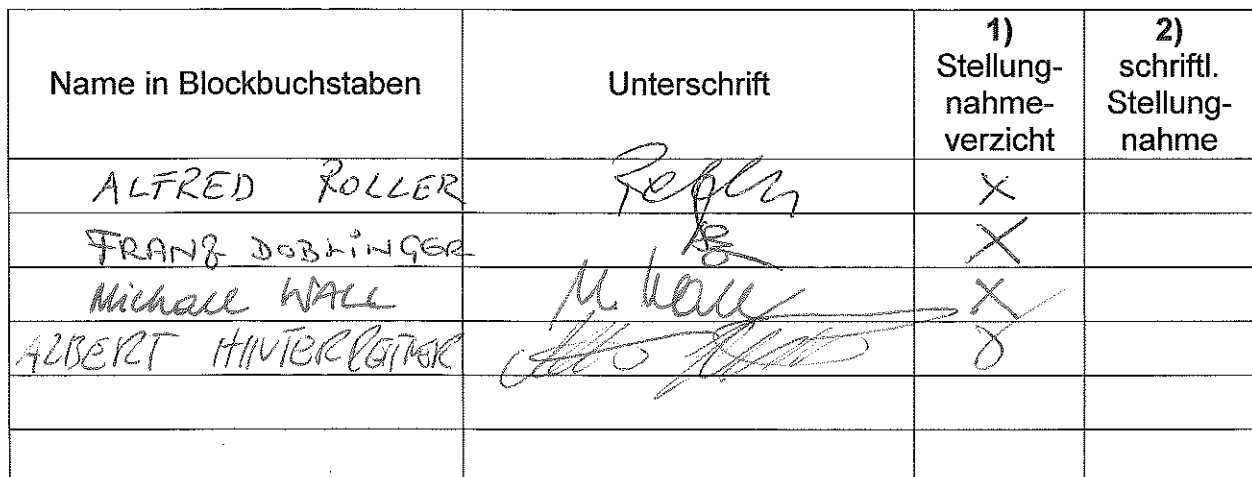 Name in Blockbuchstaben
Unterschrift
1)
Stellung-
nahme-
verzicht
2)
schriftl.
Stellung-
nahme
ALFRED ROLLER
X
FRANZ DOBLINGER
X
Michael WALL M. Wall X
ALBERT